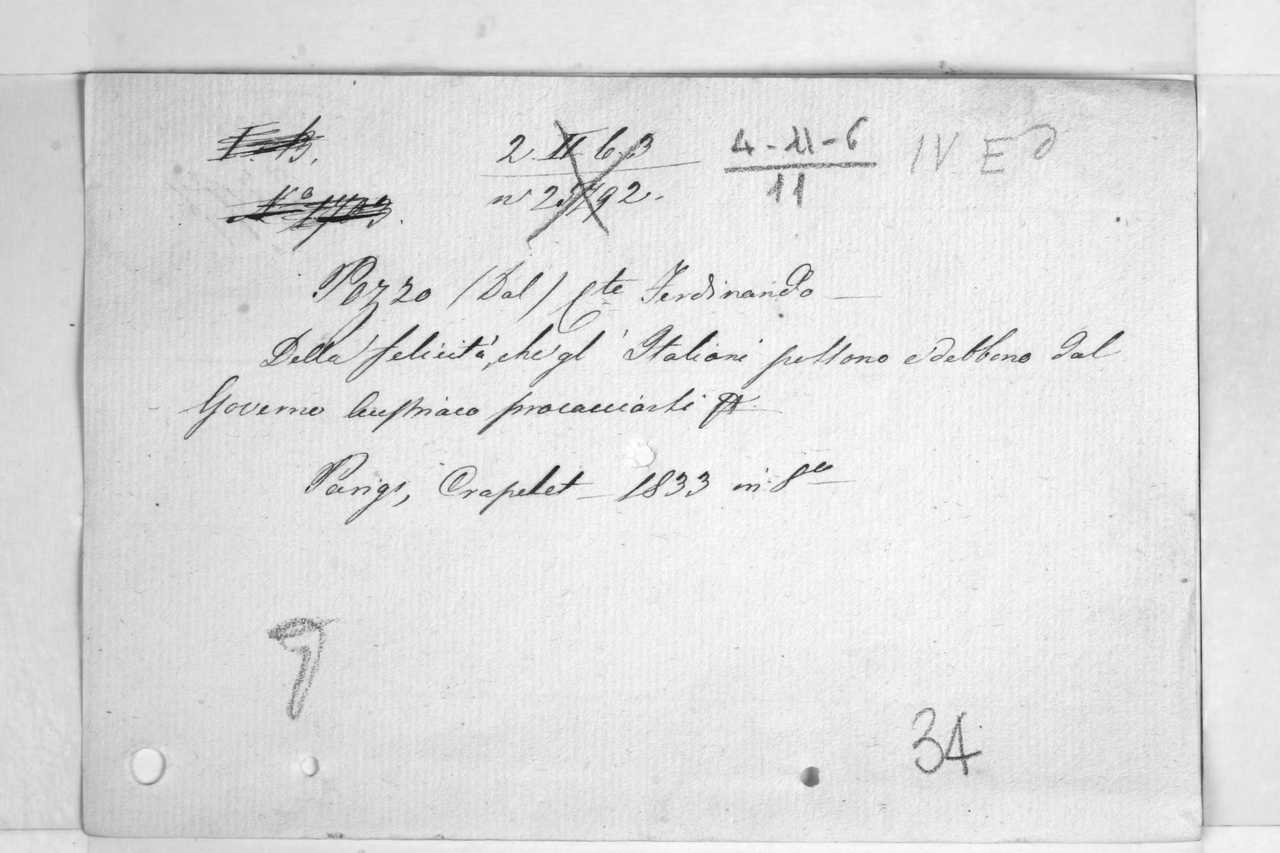 I 13. 2 II 6 3 4-11-6 IV E
n° 2 92. 11
Pozzo (Dal) Cte Ferdinando
Della felicità, che gl' Italiani possono e debbono dal
Governo Austriaco procacciarsi
Parigi, Crapelet - 1833 in 8vo
7
34